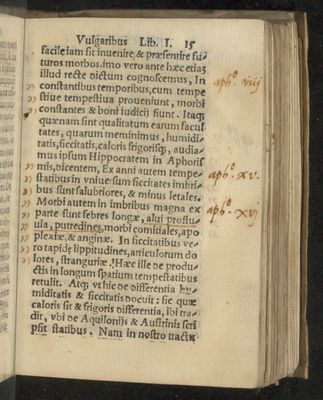 Vulgaribus Lib. I. 15
facile iam sit inuenire, & præsentire fu-
turos morbos. imo vero ante hæc etiaʒ
illud recte dictum cognoscemus, In
constantibus temporibus, cum tempe
stiue tempestiua proueniunt, morbi
constantes & boni iudicij fiunt. Itaqʒ
quænam sint qualitatum earum facul
tates, quarum meminimus, humidi-
tatis, siccitatis, caloris frigorisqʒ, audia-
mus ipsum Hippocratem in Aphoris
mis, dicentem, Ex anni autem tempe-
statibus in vniuersum siccitates imbri-
bus sunt salubriores, & minus letales.
Morbi autem in imbribus magna ex
parte sunt febres longæ, alui proflu-
uia, putredines, morbi comitiales, apo
plexiæ, & anginæ. In siccitatibus ve-
ro tapide lippitudines, articulorum do
lores, stranguriæ. Hæc ille de produ-
ctis in longum spatium tempestatibus
retulit. Atqʒ vt hic de differentia hu-
miditatis & siccitatis docuit: sic quæ
caloris sit & frigoris differentia, ibi tra-
dit, vbi de Aquilonijs & Austrinis scri
psit statibus. Nam in nostro tractu
aphº. viij
aphº. xv.
aphº. xvj